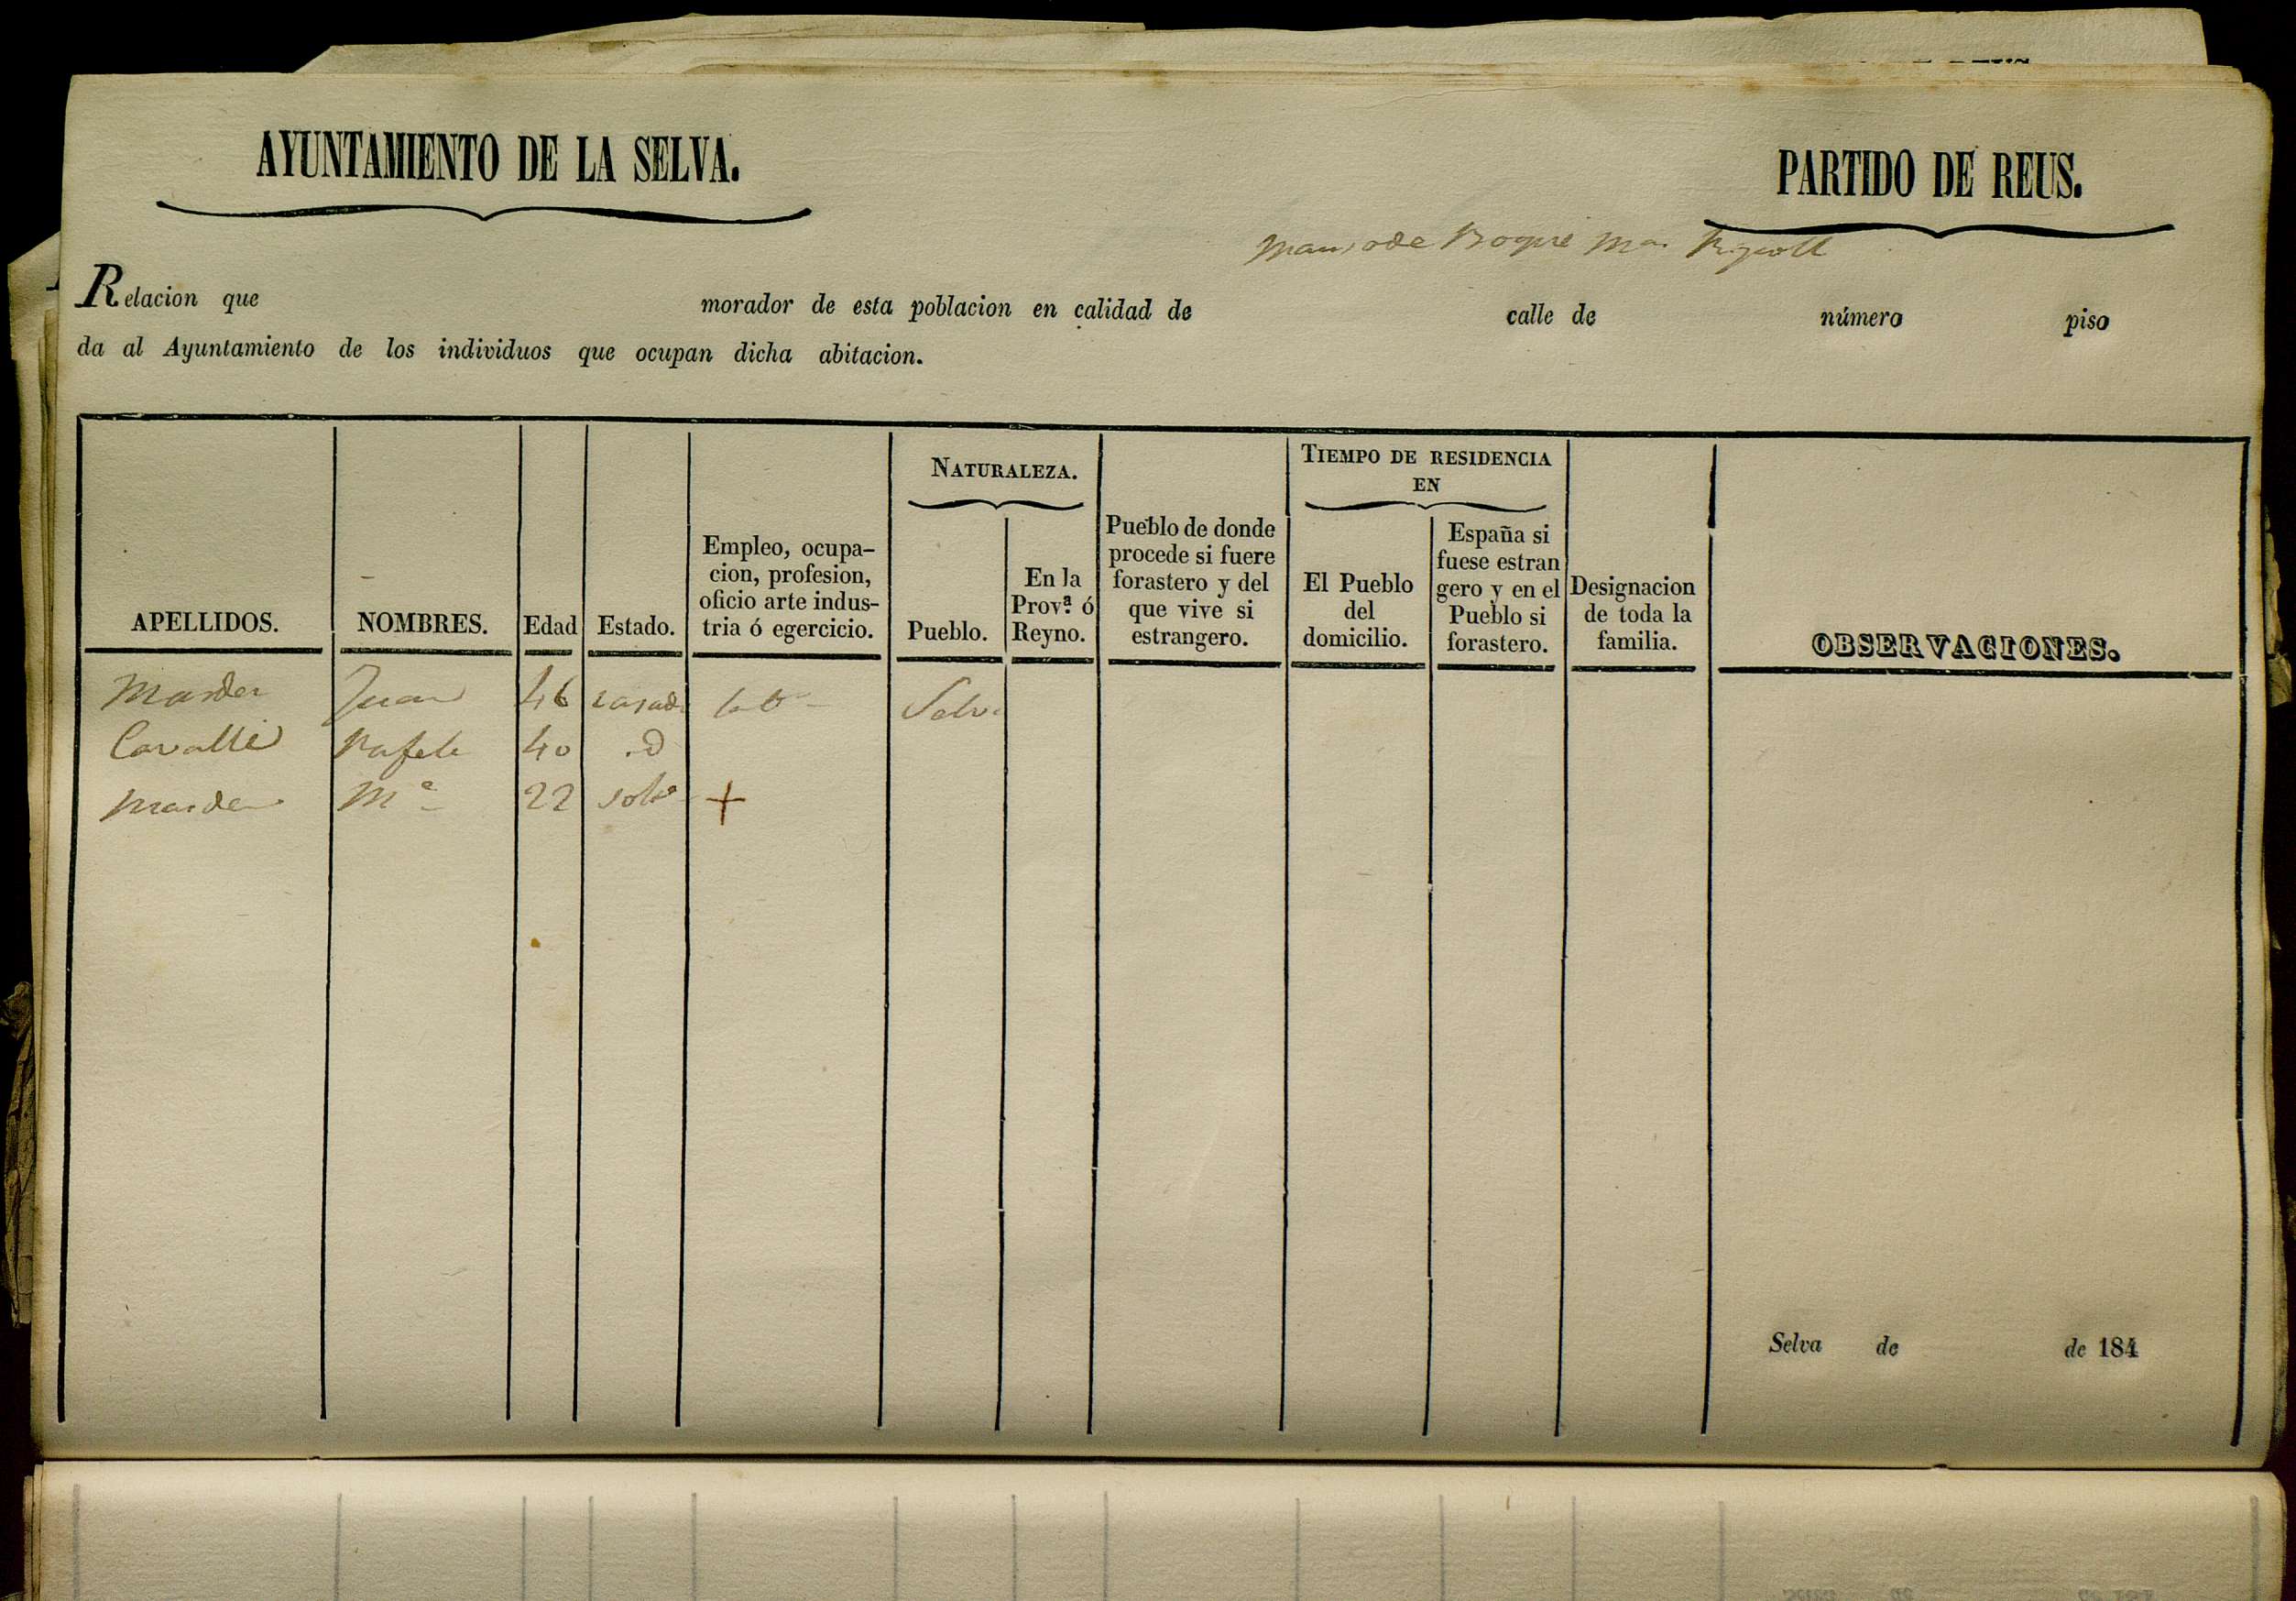 AYUNTAMIENTO DE LA SELVA.
PARTIDO DE REUS.
Relacion que morador de esta poblacion en calidad de calle de número piso
da al Ayuntamiento de los individuos que ocupan dicha abitacion.
NATURALEZA.
TIEMPO DE RESIDENCIA
EN
APELLIDOS.
NOMBRES.
Edad
Estado.
Empleo, ocupa-
cion, profesion,
oficio arte indus-
tria ó egercicio.
Pueblo.
En la
Prov.ª ó
Reyno.
Pueblo de donde
procede si fuere
forastero y del
que vive si
estrangero.
El Pueblo
del
domicilio.
España si
fuese estran
gero y en el
Pueblo si
forastero.
Designacion
de toda la
familia.
OBSERVACIONES.
Juan 46 casado Selva
Cavallé 40
Mª 22 solª +
Selva de de 184